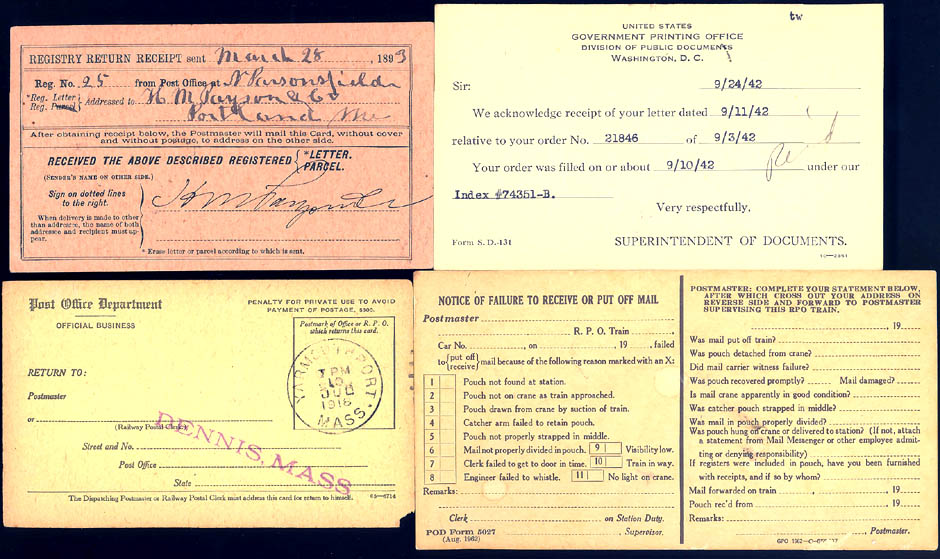 REGISTRY RETURN RECEIPT sent March 28, 1893
Reg. No. 25 from Post Office at N Parsonsfield
*Reg. Letter
Reg. Parcel
Addressed to H M Payson & Co
Portland Me
After obtaining receipt below, the Postmaster will mail this Card, without cover
and without postage, to address on the other side.
RECEIVED THE ABOVE DESCRIBED REGISTERED *LETTER.
PARCEL.
(SENDER'S NAME ON OTHER SIDE.)
Sign on dotted lines
to the right.
H M Payson & Co
When delivery is made to other
than addressee, the name of both
addressee and recipient must ap-
pear.
* Erase letter or parcel according to which is sent.
tw
UNITED STATES
GOVERNMENT PRINTING OFFICE
DIVISION OF PUBLIC DOCUMENTS
WASHINGTON, D. C.
Sir: 9/24/42
We acknowledge receipt of your letter dated 9/11/42
relative to your order No. 21846 of 9/3/42
Your order was filled on or about 9/10/42 under our
Index #74351-B.
Very respectfully,
Form S. D.-131 SUPERINTENDENT OF DOCUMENTS.
Post Office Department
OFFICIAL BUSINESS
PENALTY FOR PRIVATE USE TO AVOID
PAYMENT OF POSTAGE, $300.
Postmark of Office or R. P. O.
which returns this card.
YARMOUTHPORT.
PM
1916
MASS.
RETURN TO:
Postmaster
or
(Railway Postal Clerk)
DENNIS, MASS
Street and No.
Post Office
State
The Dispatching Postmaster or Railway Postal Clerk must address this card for return to himself.
05—6714
NOTICE OF FAILURE TO RECEIVE OR PUT OFF MAIL
Postmaster
R. P. O. Train
Car No. , on , 19 , failed
to {put off
receive} mail because of the following reason marked with an X:
1 Pouch not found at station.
2 Pouch not on crane as train approached.
3 Pouch drawn from crane by suction of train.
4 Catcher arm failed to retain pouch.
5 Pouch not properly strapped in middle.
6 Mail not properly divided in pouch. 9 Visibility low.
7 Clerk failed to get to door in time. 10 Train in way.
8 Engineer failed to whistle. 11 No light on crane.
Remarks:
Clerk on Station Duty.
, Supervisor.
POD Form 5027
(Aug. 1962)
POSTMASTER: COMPLETE YOUR STATEMENT BELOW,
AFTER WHICH CROSS OUT YOUR ADDRESS ON
REVERSE SIDE AND FORWARD TO POSTMASTER
SUPERVISING THIS RPO TRAIN.
, 19
Was mail put off train?
Was pouch detached from crane?
Did mail carrier witness failure?
Was pouch recovered promptly? Mail damaged?
Is mail crane apparently in good condition?
Was catcher pouch strapped in middle?
Was mail in pouch properly divided?
Was pouch hung on crane or delivered to station? (If not, attach
a statement from Mail Messenger or other employee admit-
ting or denying responsibility)
If registers were included in pouch, have you been furnished
with receipts, and if so by whom?
Mail forwarded on train , , 19
Pouch rec'd from , 19
Remarks:
, Postmaster.